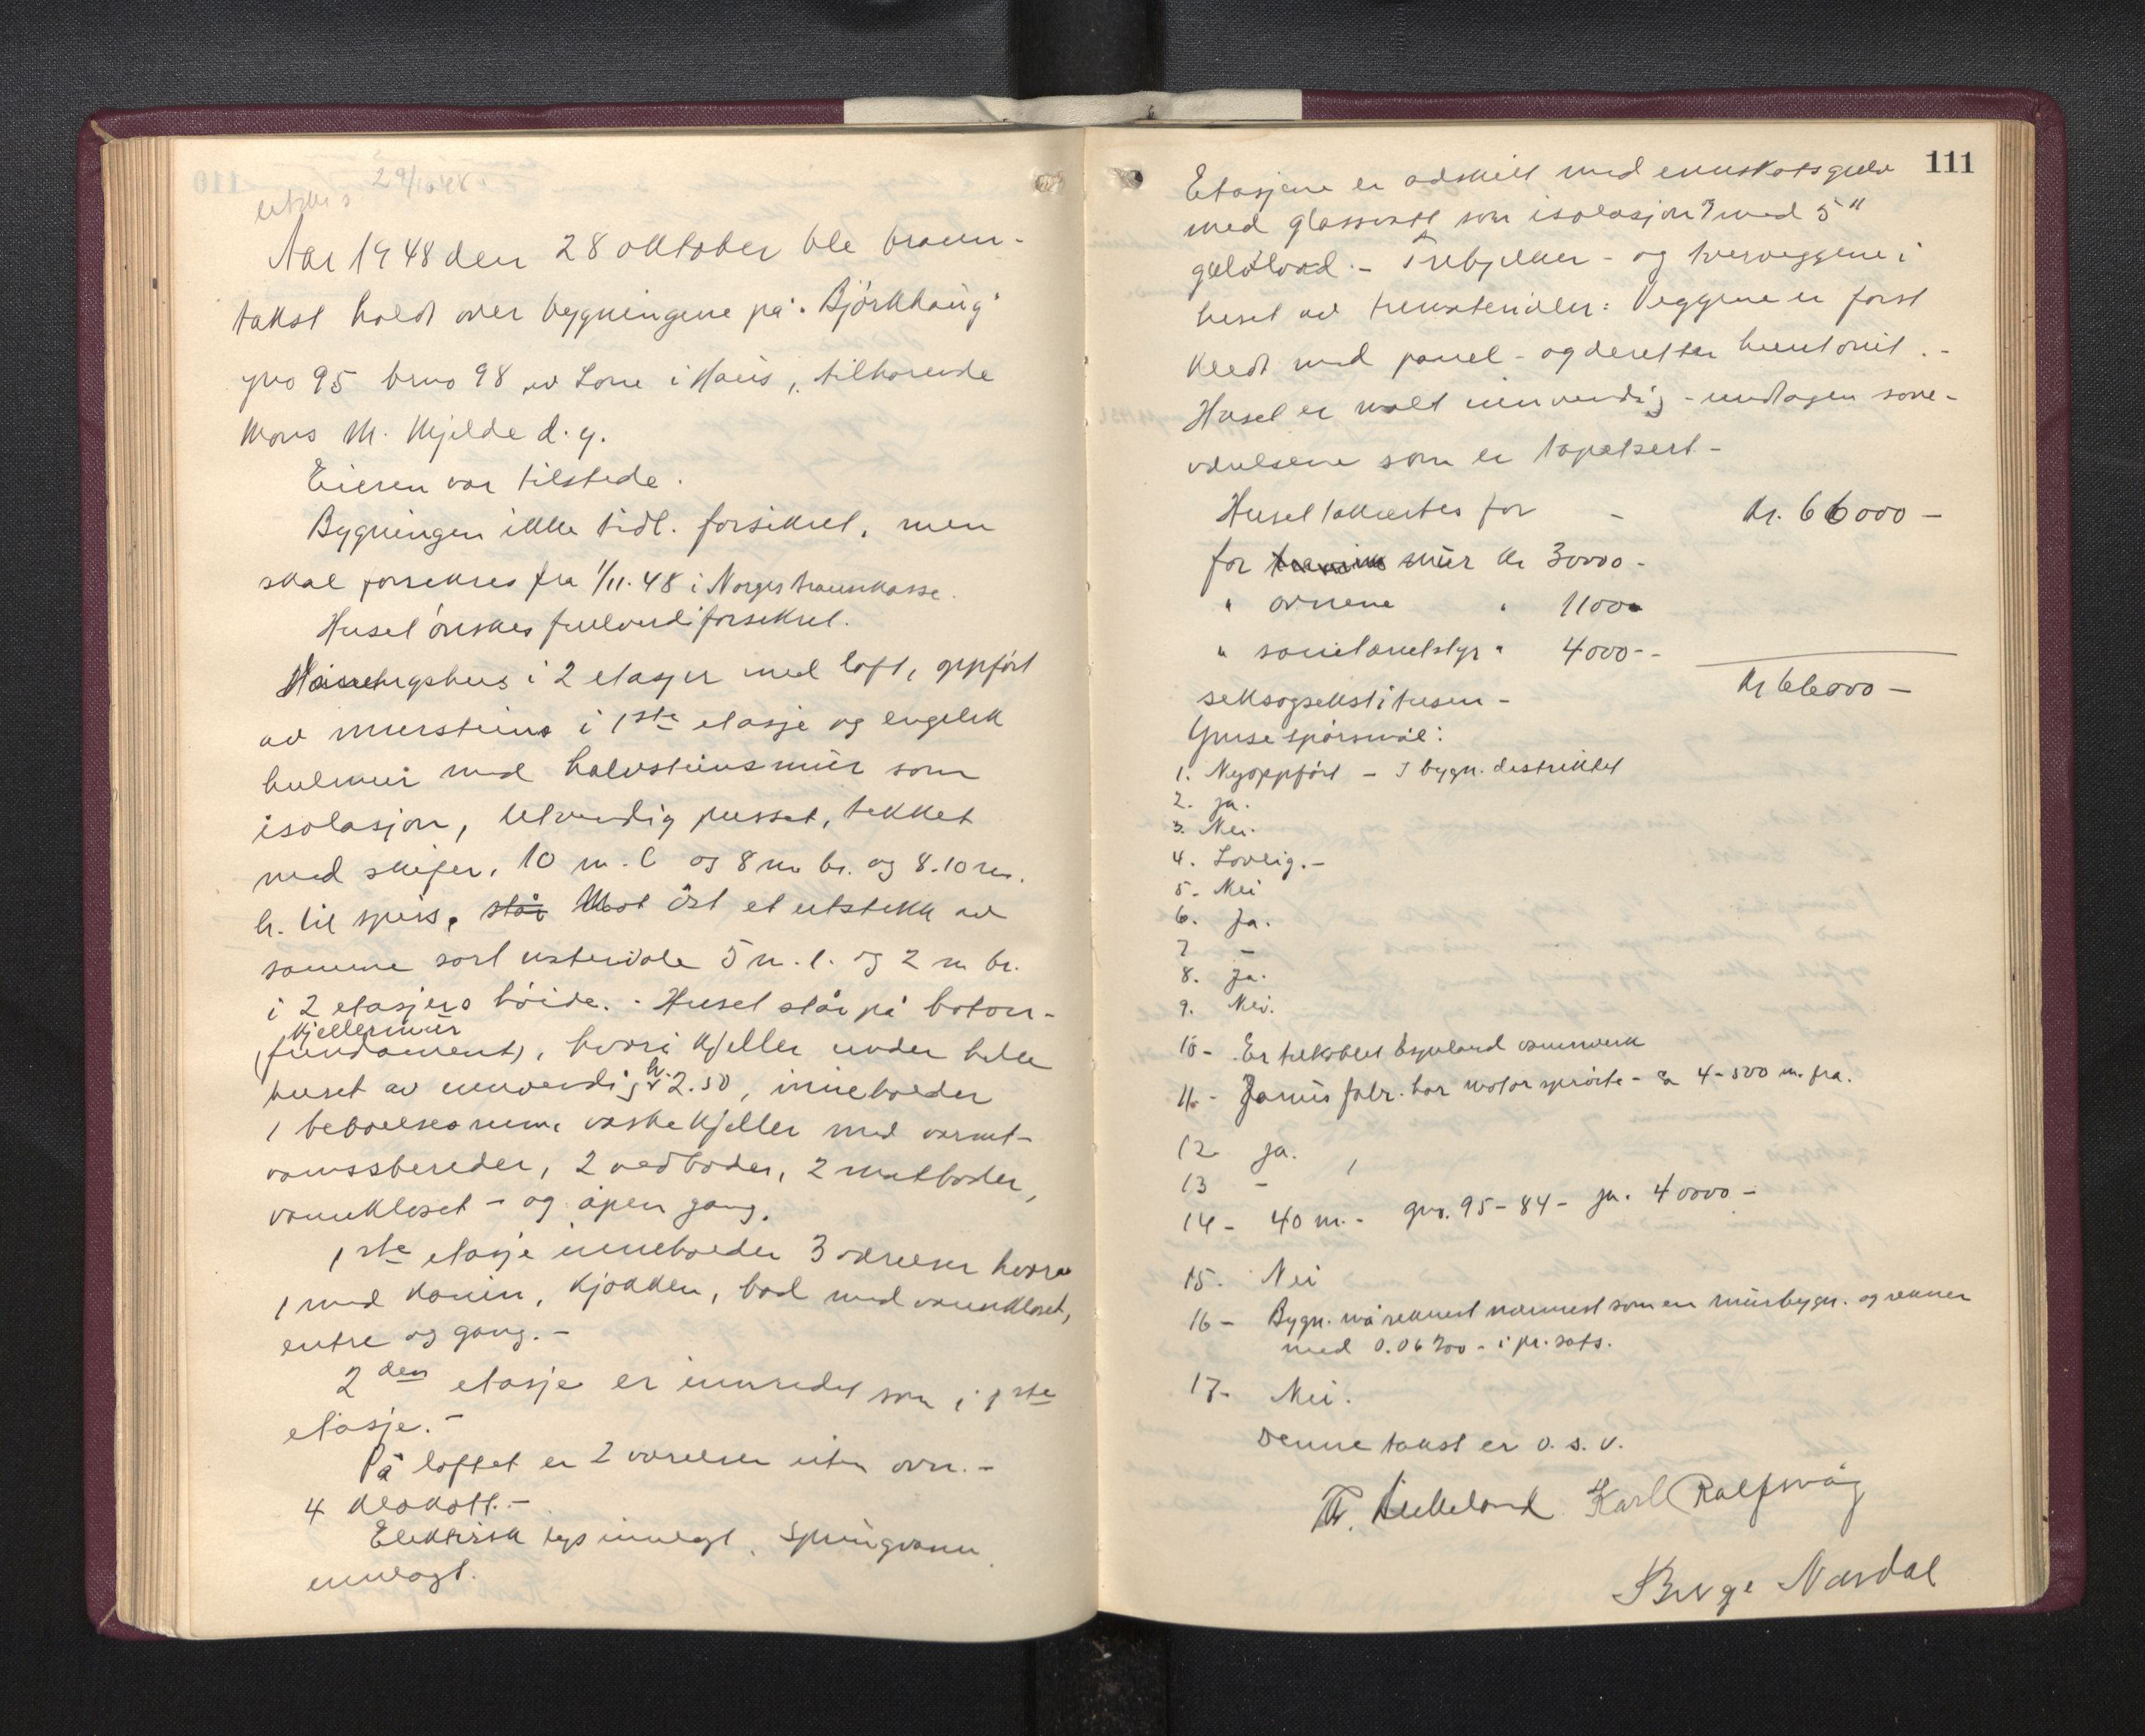 utskr. 29/10 48.
Aar 1948 den 28 oktober ble brann-
takst holdt over bygningene på "Björkhaug"
gno 95 brno 98 av Lone i Haus, tilhörende
Mons M. Mjelde d. y.
Eieren var tilstede.
Bygningen ikke tidl. forsikret, men
skal forsikres fra 1/11. 48 i Norges brannkasse.
Huset önskes fullverdiforsikret.
Våningshus i 2 etasjer med loft, oppfört
av murstein i 1ste etasje og engelsk
hulmur med halvsteinsmur som
isolasjon, utvendig pusset, tekket
med skifer, 10 m. l og 8 m br. og 8.10 m.
h. til spiss. står Mot öst et utstikk av
samme sort materiale 5 m. l. og 2 m br.
i 2 etasjers höide. - Huset står på beton-
kjellermur
(fundament), hvori kjeller under hele
huset av innvendig h. 2.50, inneholder
1 beboelsesrum, vaskekjeller med varmt-
vannsbereder, 2 vedboder, 2 matboder,
vannkloset - og åpen gang.
1ste etasje inneholder 3 værelser hvorav
1 med kamin, kjökken, bad med vannkloset,
entre og gang. -
2den etasje er innredet som i 1ste
etasje. -
På loftet er 2 værelser uten ovn. -
4 kleskott. -
Elektrisk lys innlagt. Springvann
innlagt.
111
Etasjene er adskilt med enuskotsgulv
med glassvatt som isolasjon med 5"
gulvbord. - Trebjelker - og tverveggene i
huset av trematerialer: Veggene er först
kledt med panel - og deretter huntonit. -
Huset er malt innvendig - undtagen sove-
værelsene som er tapetsert -
Huset taksertes for - Kr. 66000 -
for mur kr 30000 -
" ovnene " 1100 -
" sanitærutstyr " 4000 - -
Kr 66000 -
seksogsekstitusen -
Yms spörsmål:
1. Nyoppfört - I bygn. distriktet
2. ja.
3. Nei.
4. Lovlig. -
5. Nei
6. Ja.
7 -
8. Ja.
9. Nei.
10 - Er tilkoblet Espeland vannverk
11. - Janus fabr. har motorspröite - ca 4-500 m. fra.
12. ja.
13 -
14 - 40 m. - gnr. 95 - 84 - ja. 40000 -
15. Nei
16 - Bygn. må reknest nærmest som en mursbygn. og rekner
med 0.06 % - i pr. sats.
17. Nei.
Denne takst er o. s. v.
Karl Ralfsvåg
Birge Nordal